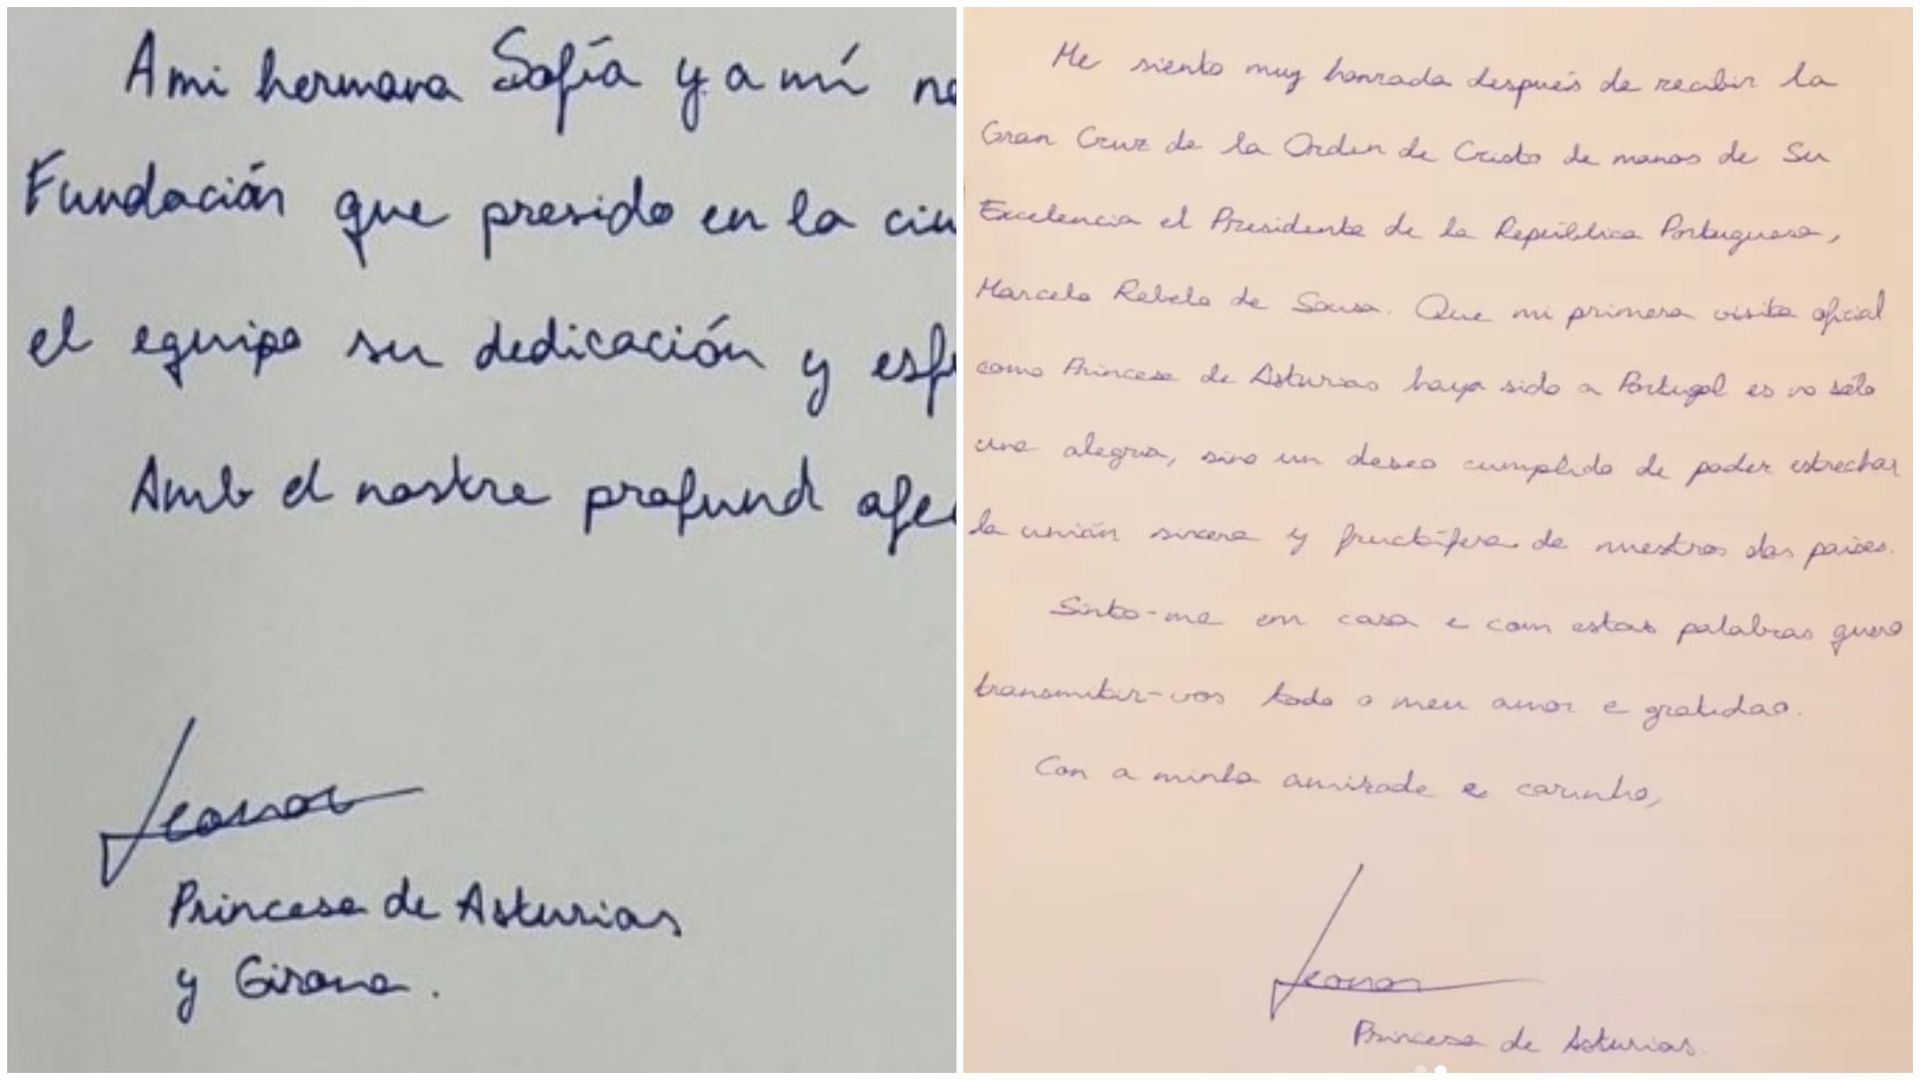 A mi hermana Sofía y a mí
Fundación que presido en la
el equipo su dedicación y
Amb el nostre profund
Leonor
Princesa de Asturias
y Girona.
Me siento muy honrada después de recibir la
Gran Cruz de la Orden de Cristo de manos de Su
Excelencia el Presidente de la República Portuguesa,
Marcelo Rebelo de Sousa. Que mi primera visita oficial
como Princesa de Asturias haya sido a Portugal es no sólo
una alegría, sino un deseo cumplido de poder estrechar
la unión sincera y fructífera de nuestros dos países.
Sinto-me em casa e com estas palabras quero
transmitir-vos todo o meu amor e gratidao.
Con a minha amizade e carinho,
Leonor
Princesa de Asturias.